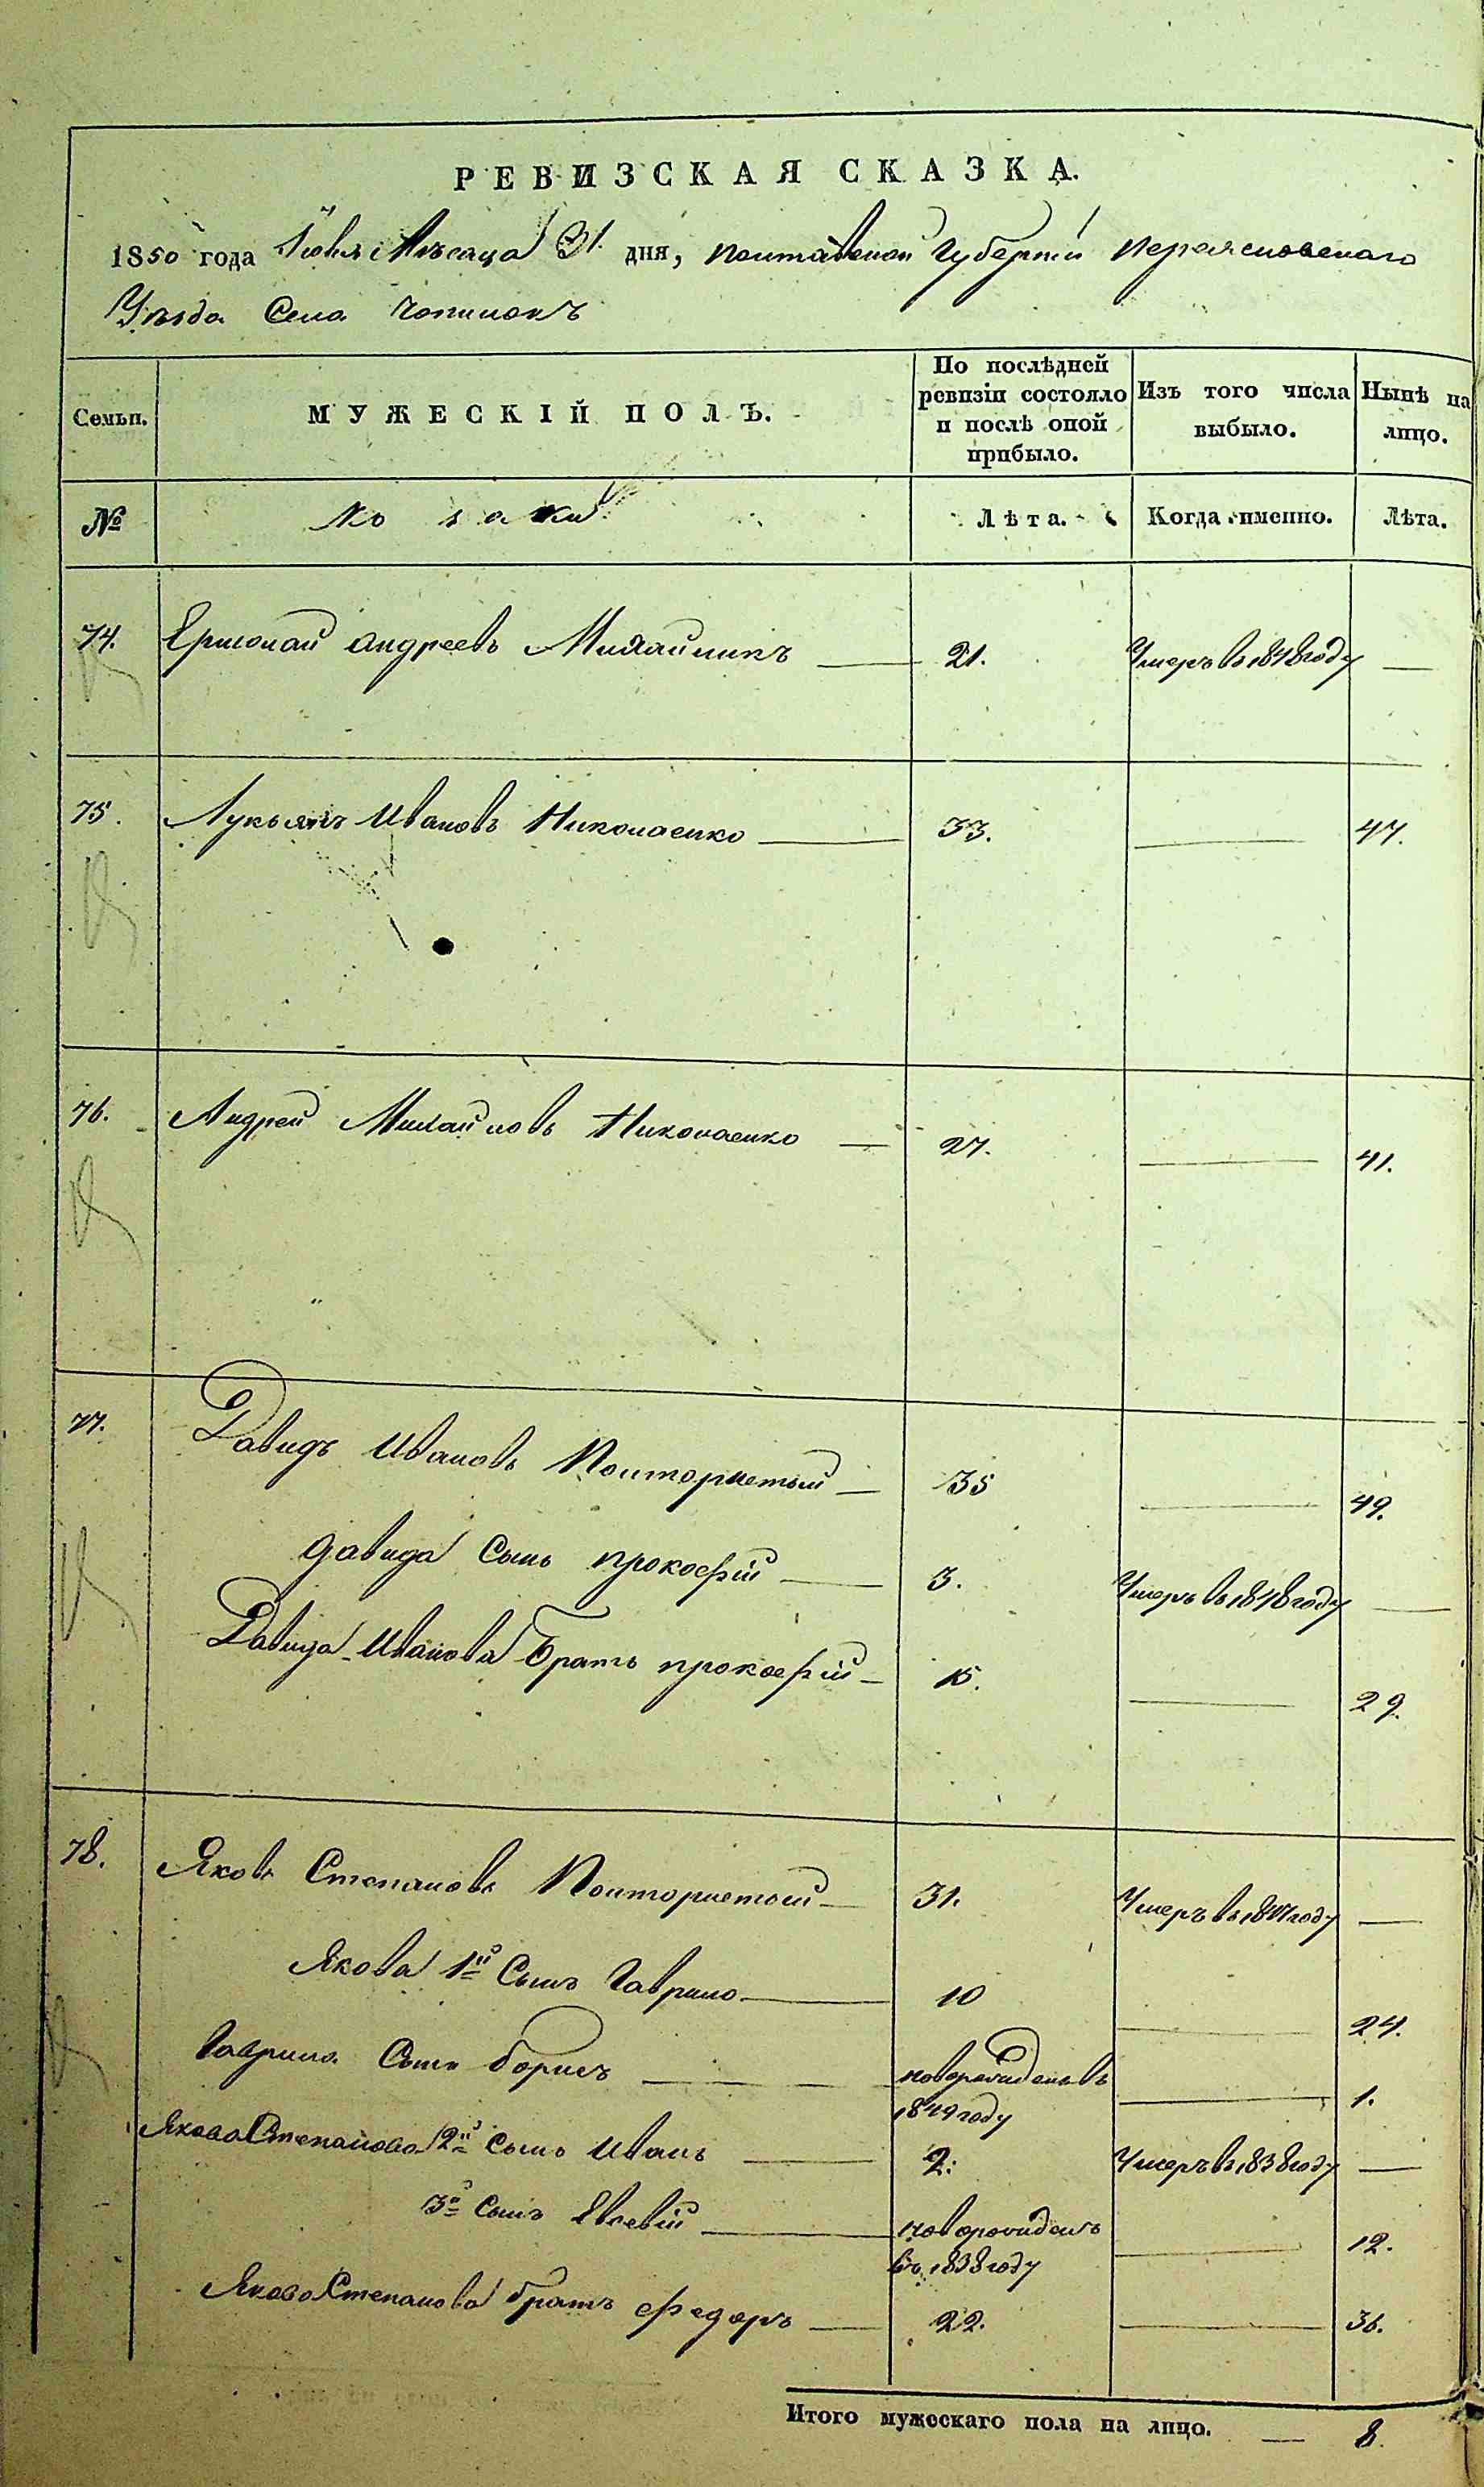 РЕВИЗСКАЯ СКАЗКА.
1850 года Іюля Мѣсяца 31 дня, Полтавской Губерніи Переяславскаго
Уѣзда Села Чопилокъ
Семьи. МУЖЕСКІЙ ПОЛЪ. По послѣдней ревизіи состояло и послѣ оной прибыло. Изъ того числа выбыло. Нынѣ на лицо.
№ Козаки Лѣта. Когда именно. Лѣта.
74. Ермолай Андреевъ Михайликъ 21. Умеръ в 1848 году
75. Лукьянъ Ивановъ Николаенко 33. 47.
76. Андрей Михайловъ Николаенко 27. 41.
77. Давидъ Ивановъ 35 49.
Давида Сынъ Прокофій 3. Умеръ в 1848 году
Давида Иванова Братъ Прокофій 15. 29.
78. Яковъ Степановъ 31. Умеръ в году
Якова 1й Сынъ Гаврило 10 24.
Гаврила Сынъ Борисъ новорожденъ въ 1849 году 1.
Якова Степанова 2й Сынъ Иванъ 2. Умеръ в 1838 году
3й Сынъ Евсевій новорожденъ въ 1838 году 12.
Якова Степанова братъ Федоръ 22. 36.
Итого мужескаго пола на лицо. 8.